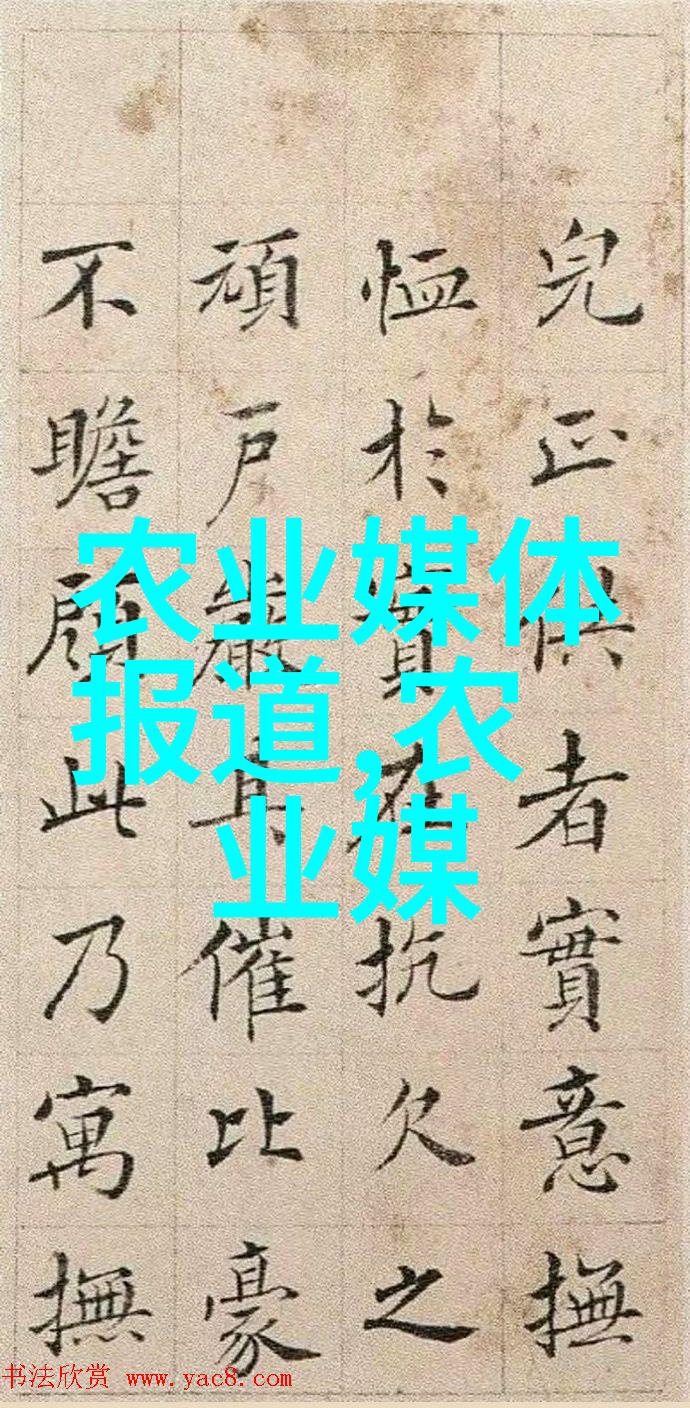 完正供者實意撫
恤於實在抗欠之
頑戶嚴其催比豪
不瞻顧此乃寓撫
农业媒体
报道,农
业媒
书法欣赏 www.yac8.com